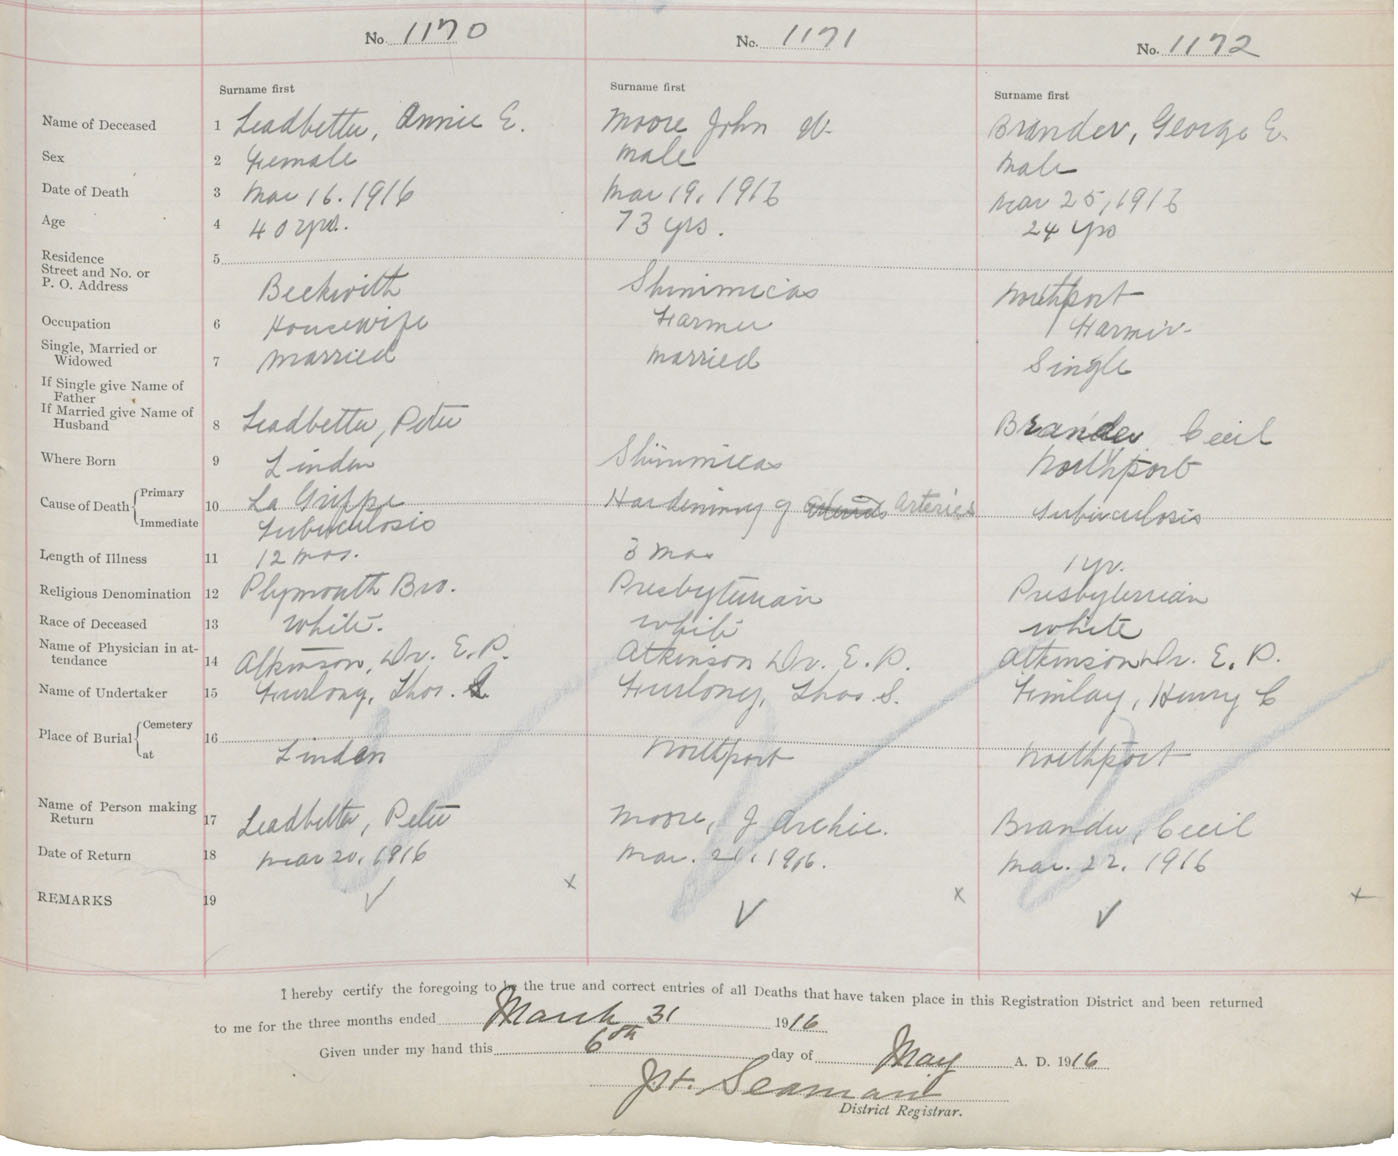 No. 1170 No. 1171 No. 1172
Surname first Surname first Surname first
Name of Deceased 1 Leadbetter, Annie E. Moore John W. Brander, George E.
Sex 2 Female Male Male
Date of Death 3 Mar 16. 1916 Mar 19, 1916 Mar 25, 1916
Age 4 40 yrs. 73 yrs. 24 yrs
Residence 5
Street and No. or
P. O. Address Beckwith Shinimicas Northport
Occupation 6 Housewife Farmer Farmer
Single, Married or
Widowed 7 Married Married Single
If Single give Name of
Father
If Married give Name of
Husband 8 Leadbetter, Peter Brander Cecil
Where Born 9 Linden Shinimicas Northport
Cause of Death Primary 10 La Grippe Hardening of Arteries Tuberculosis
Immediate Tuberculosis
Length of Illness 11 12 mos. 3 mos 1 yr.
Religious Denomination 12 Plymouth Bro. Presbyterian Presbyterian
Race of Deceased 13 White. White White
Name of Physician in at-
tendance 14 Atkinson, Dr. E. P. Atkinson Dr. E. P. Atkinson Dr. E. P.
Name of Undertaker 15 Furlong, Thos. S. Furlong, Thos. S. Finlay, Henry C
Place of Burial Cemetery 16
at Linden Northport Northport
Name of Person making
Return 17 Leadbetter, Peter Moore, J Archie. Brander, Cecil
Date of Return 18 Mar 20, 1916 Mar. 21, 1916. Mar. 22, 1916
REMARKS 19
I hereby certify the foregoing to be the true and correct entries of all Deaths that have taken place in this Registration District and been returned
to me for the three months ended March 31 1916
Given under my hand this 6th day of May A. D. 1916
Seaman
District Registrar.